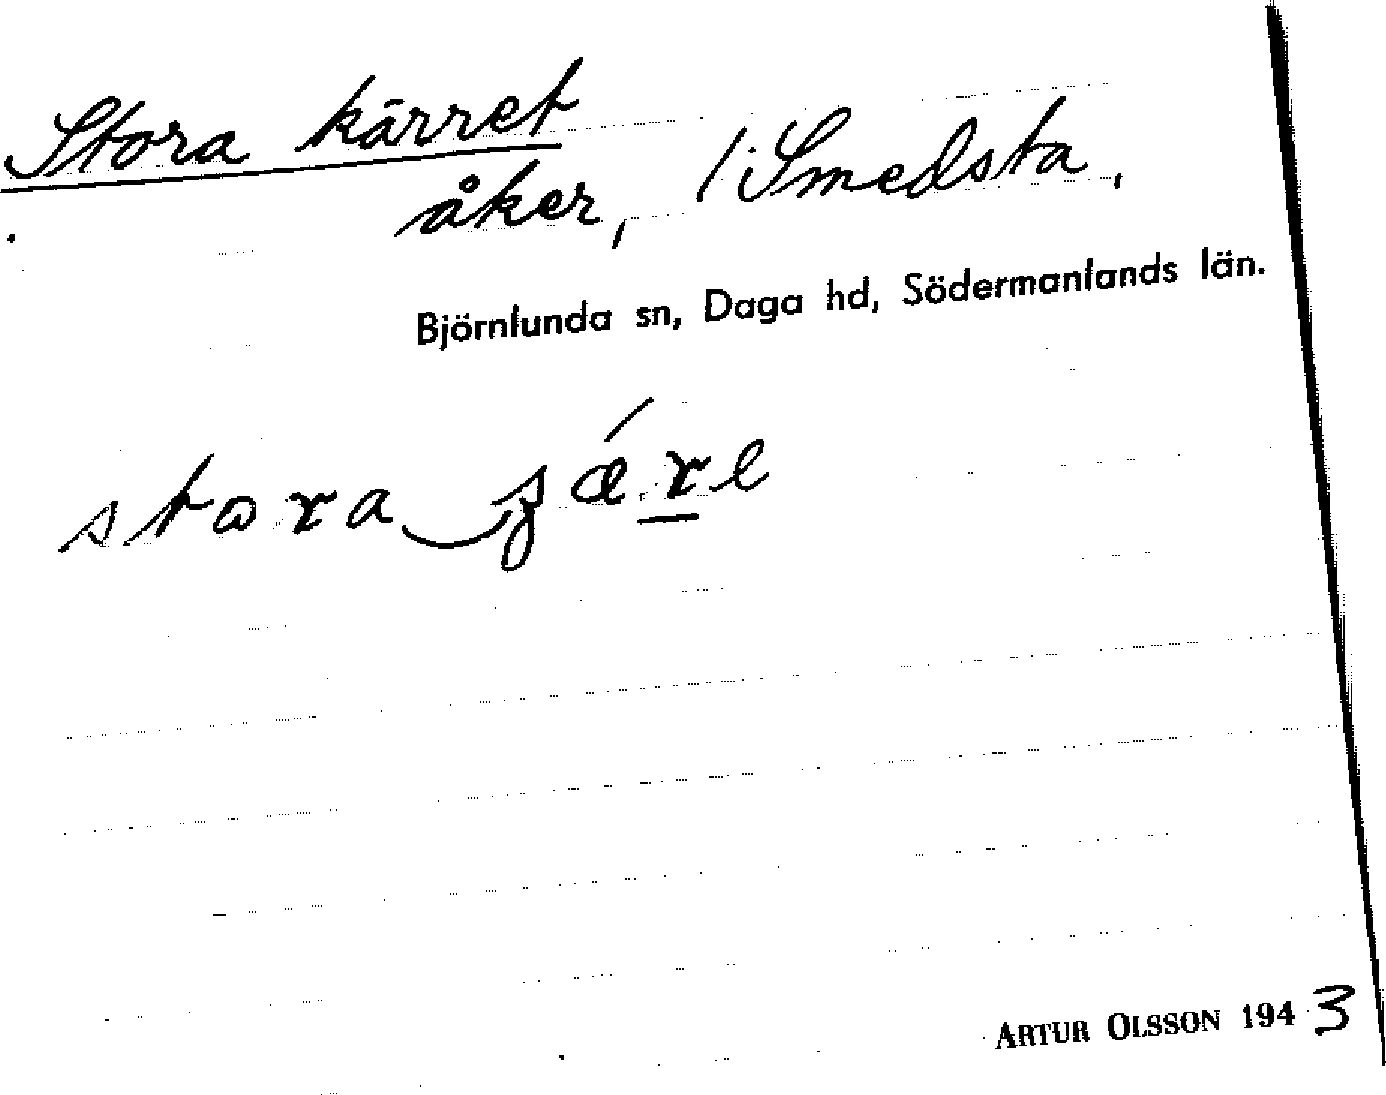 Stora kärret
åker, i Smedsta,
Björnlunda sn, Daga hd, Södermanlands län.
stora
ARTUR OLSSON 1943